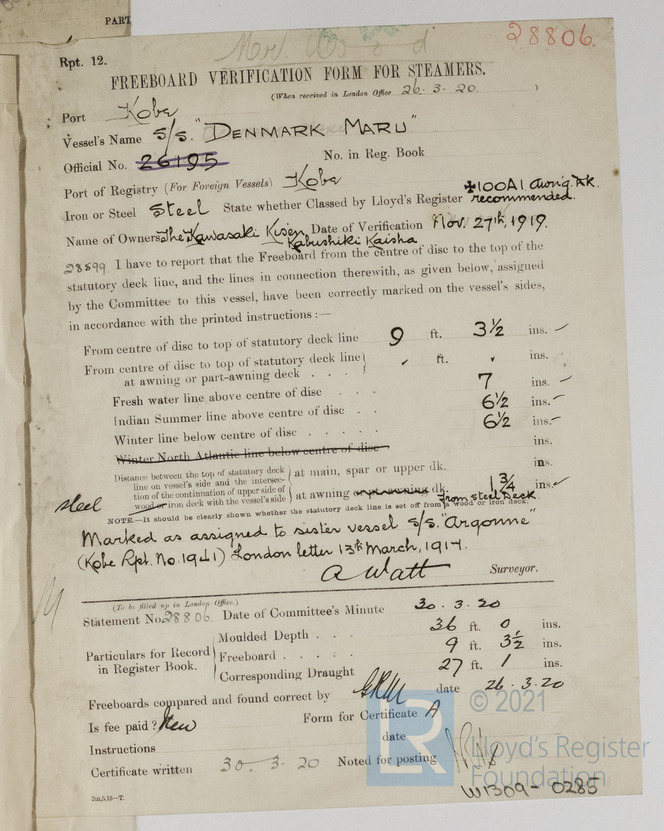 PART
Mr Wood
28806.
Rpt. 12.
FREEBOARD VERIFICATION FORM FOR STEAMERS.
(When received in London Office 26.3.20 )
Port Kobe
Vessel's Name S/S. "DENMARK MARU"
Official No. 26195 No. in Reg. Book
Port of Registry (For Foreign Vessels) Kobe
Iron or Steel Steel State whether Classed by Lloyd's Register ✠100A1 Awn'g. Dk. recommended.
Name of Owners The Kawasaki Kisen Kabushiki Kaisha Date of Verification Nov. 27th, 1919.
28599. I have to report that the Freeboard from the centre of disc to the top of the
statutory deck line, and the lines in connection therewith, as given below, assigned
by the Committee to this vessel, have been correctly marked on the vessel's sides,
in accordance with the printed instructions :—
From centre of disc to top of statutory deck line 9 ft. 3½ ins.
From centre of disc to top of statutory deck line
at awning or part-awning deck . . . ft. ins.
Fresh water line above centre of disc . . . 7 ins.
Indian Summer line above centre of disc . . 6½ ins.
Winter line below centre of disc . . . . . 6½ ins.
Winter North Atlantic line below centre of disc ins.
Distance between the top of statutory deck
line on vessel's side and the intersec-
tion of the continuation of upper side of
steel wood or iron deck with the vessel's side
at main, spar or upper dk. ins.
at awning or part-awning dk. 1¾ ins.
From Steel Deck.
NOTE.—It should be clearly shown whether the statutory deck line is set off from a wood or iron deck.
Marked as assigned to sister vessel S/S. "Argonne"
(Kobe Rpt. No. 1941) London letter 13th March, 1917.
A Watt Surveyor.
(To be filled up in London Office.)
Statement No. 28806. Date of Committee's Minute 30.3.20
Particulars for Record
in Register Book.
Moulded Depth . . . 36 ft. 0 ins.
Freeboard . . . . . 9 ft. 3½ ins.
Corresponding Draught 27 ft. 1 ins.
Freeboards compared and found correct by date 26.3.20
Is fee paid? Form for Certificate A
Instructions date
Certificate written 30.3.20 Noted for posting
2m,5,15—T.
© 2021
LR
Lloyd's Register
Foundation
W1309-0285